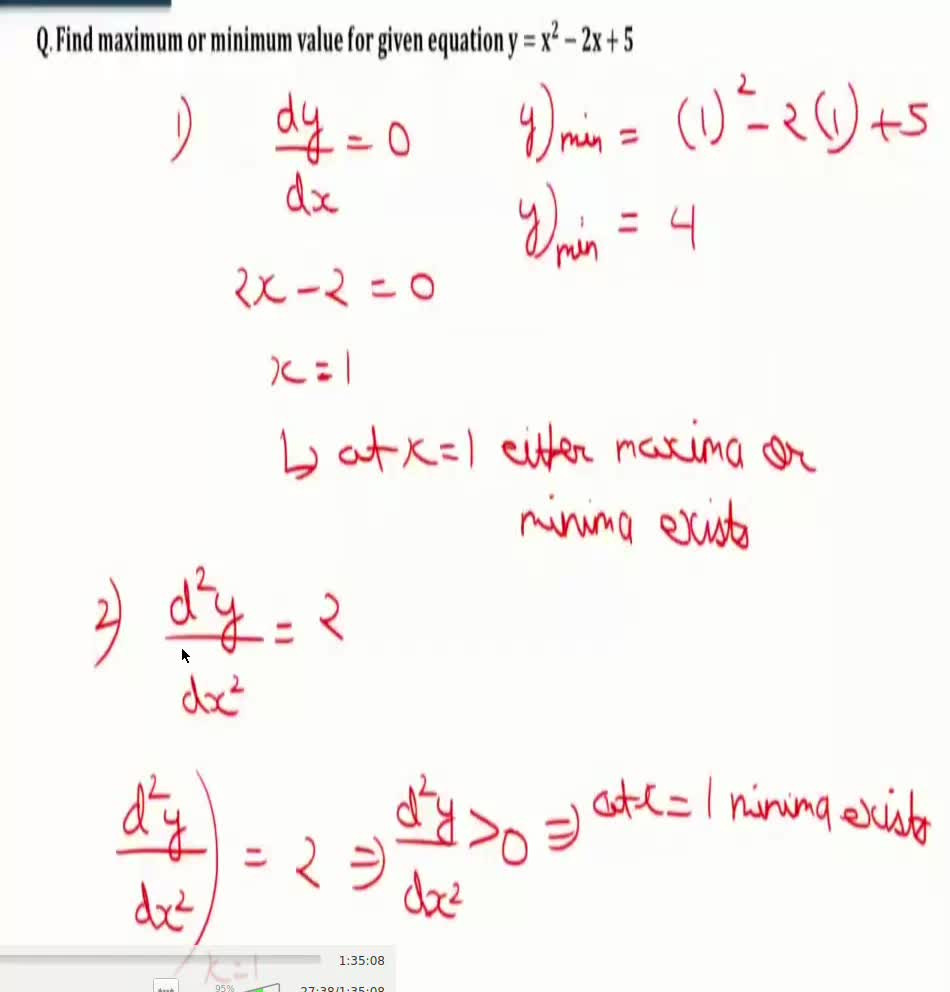 Q. Find maximum or minimum value for given equation y = x² – 2x + 5
1) dy/dx = 0
2x – 2 = 0
x = 1
↳ at x = 1 either maxima or
minima exists
y)min = (1)² – 2(1) + 5
y)min = 4
2) d²y/dx² = 2
d²y/dx²)x=1 = 2 ⇒ d²y/dx² > 0 ⇒ at x = 1 minima exists
1:35:08
95%
27:38/1:35:08